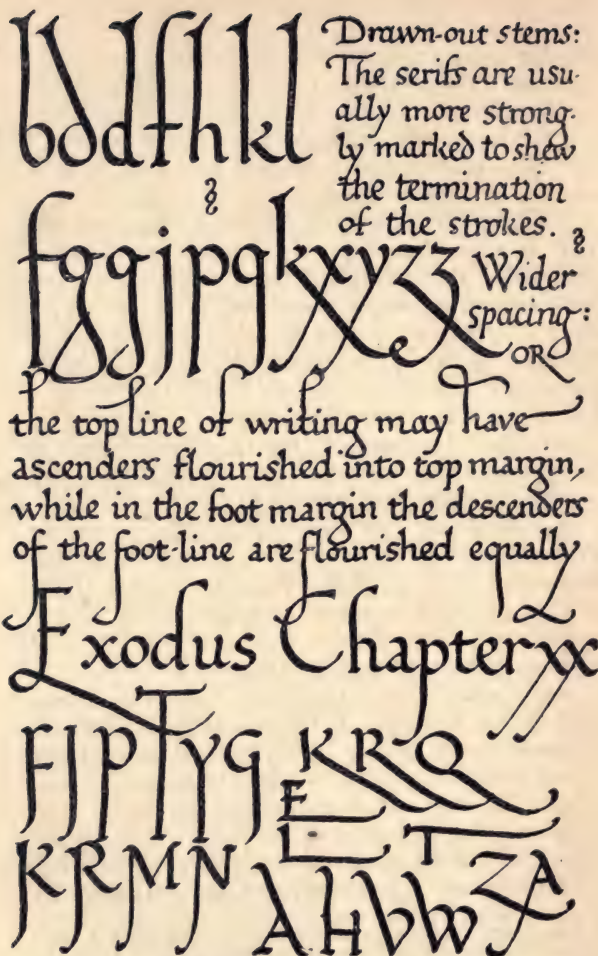 bddfhkl
Drawn-out stems:
The serifs are usu-
ally more strong-
ly marked to shew
the termination
of the strokes.
fggjpqkxyzz
Wider
spacing:
OR
the top line of writing may have
ascenders flourished into top margin,
while in the foot margin the descenders
of the foot-line are flourished equally
Exodus Chapter xx
FJPTYG
KRQ
F
L T
KRMN
AHVWZA